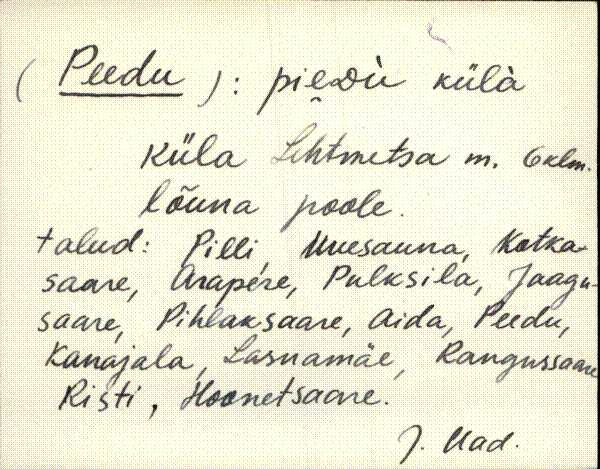 (Peedu): pieDù külà
küla Lehtmetsa m. 6 klm.
lõuna poole.
talud: Pilli, Uuesauna, Kotka-
saare, Arapere, Pulksila, Jaagu-
saare, Pihlaksaare, Aida, Peedu,
Kanajala, Lasnamäe, Rangussaare
Risti, Hoonetsaare.
J. Uad.